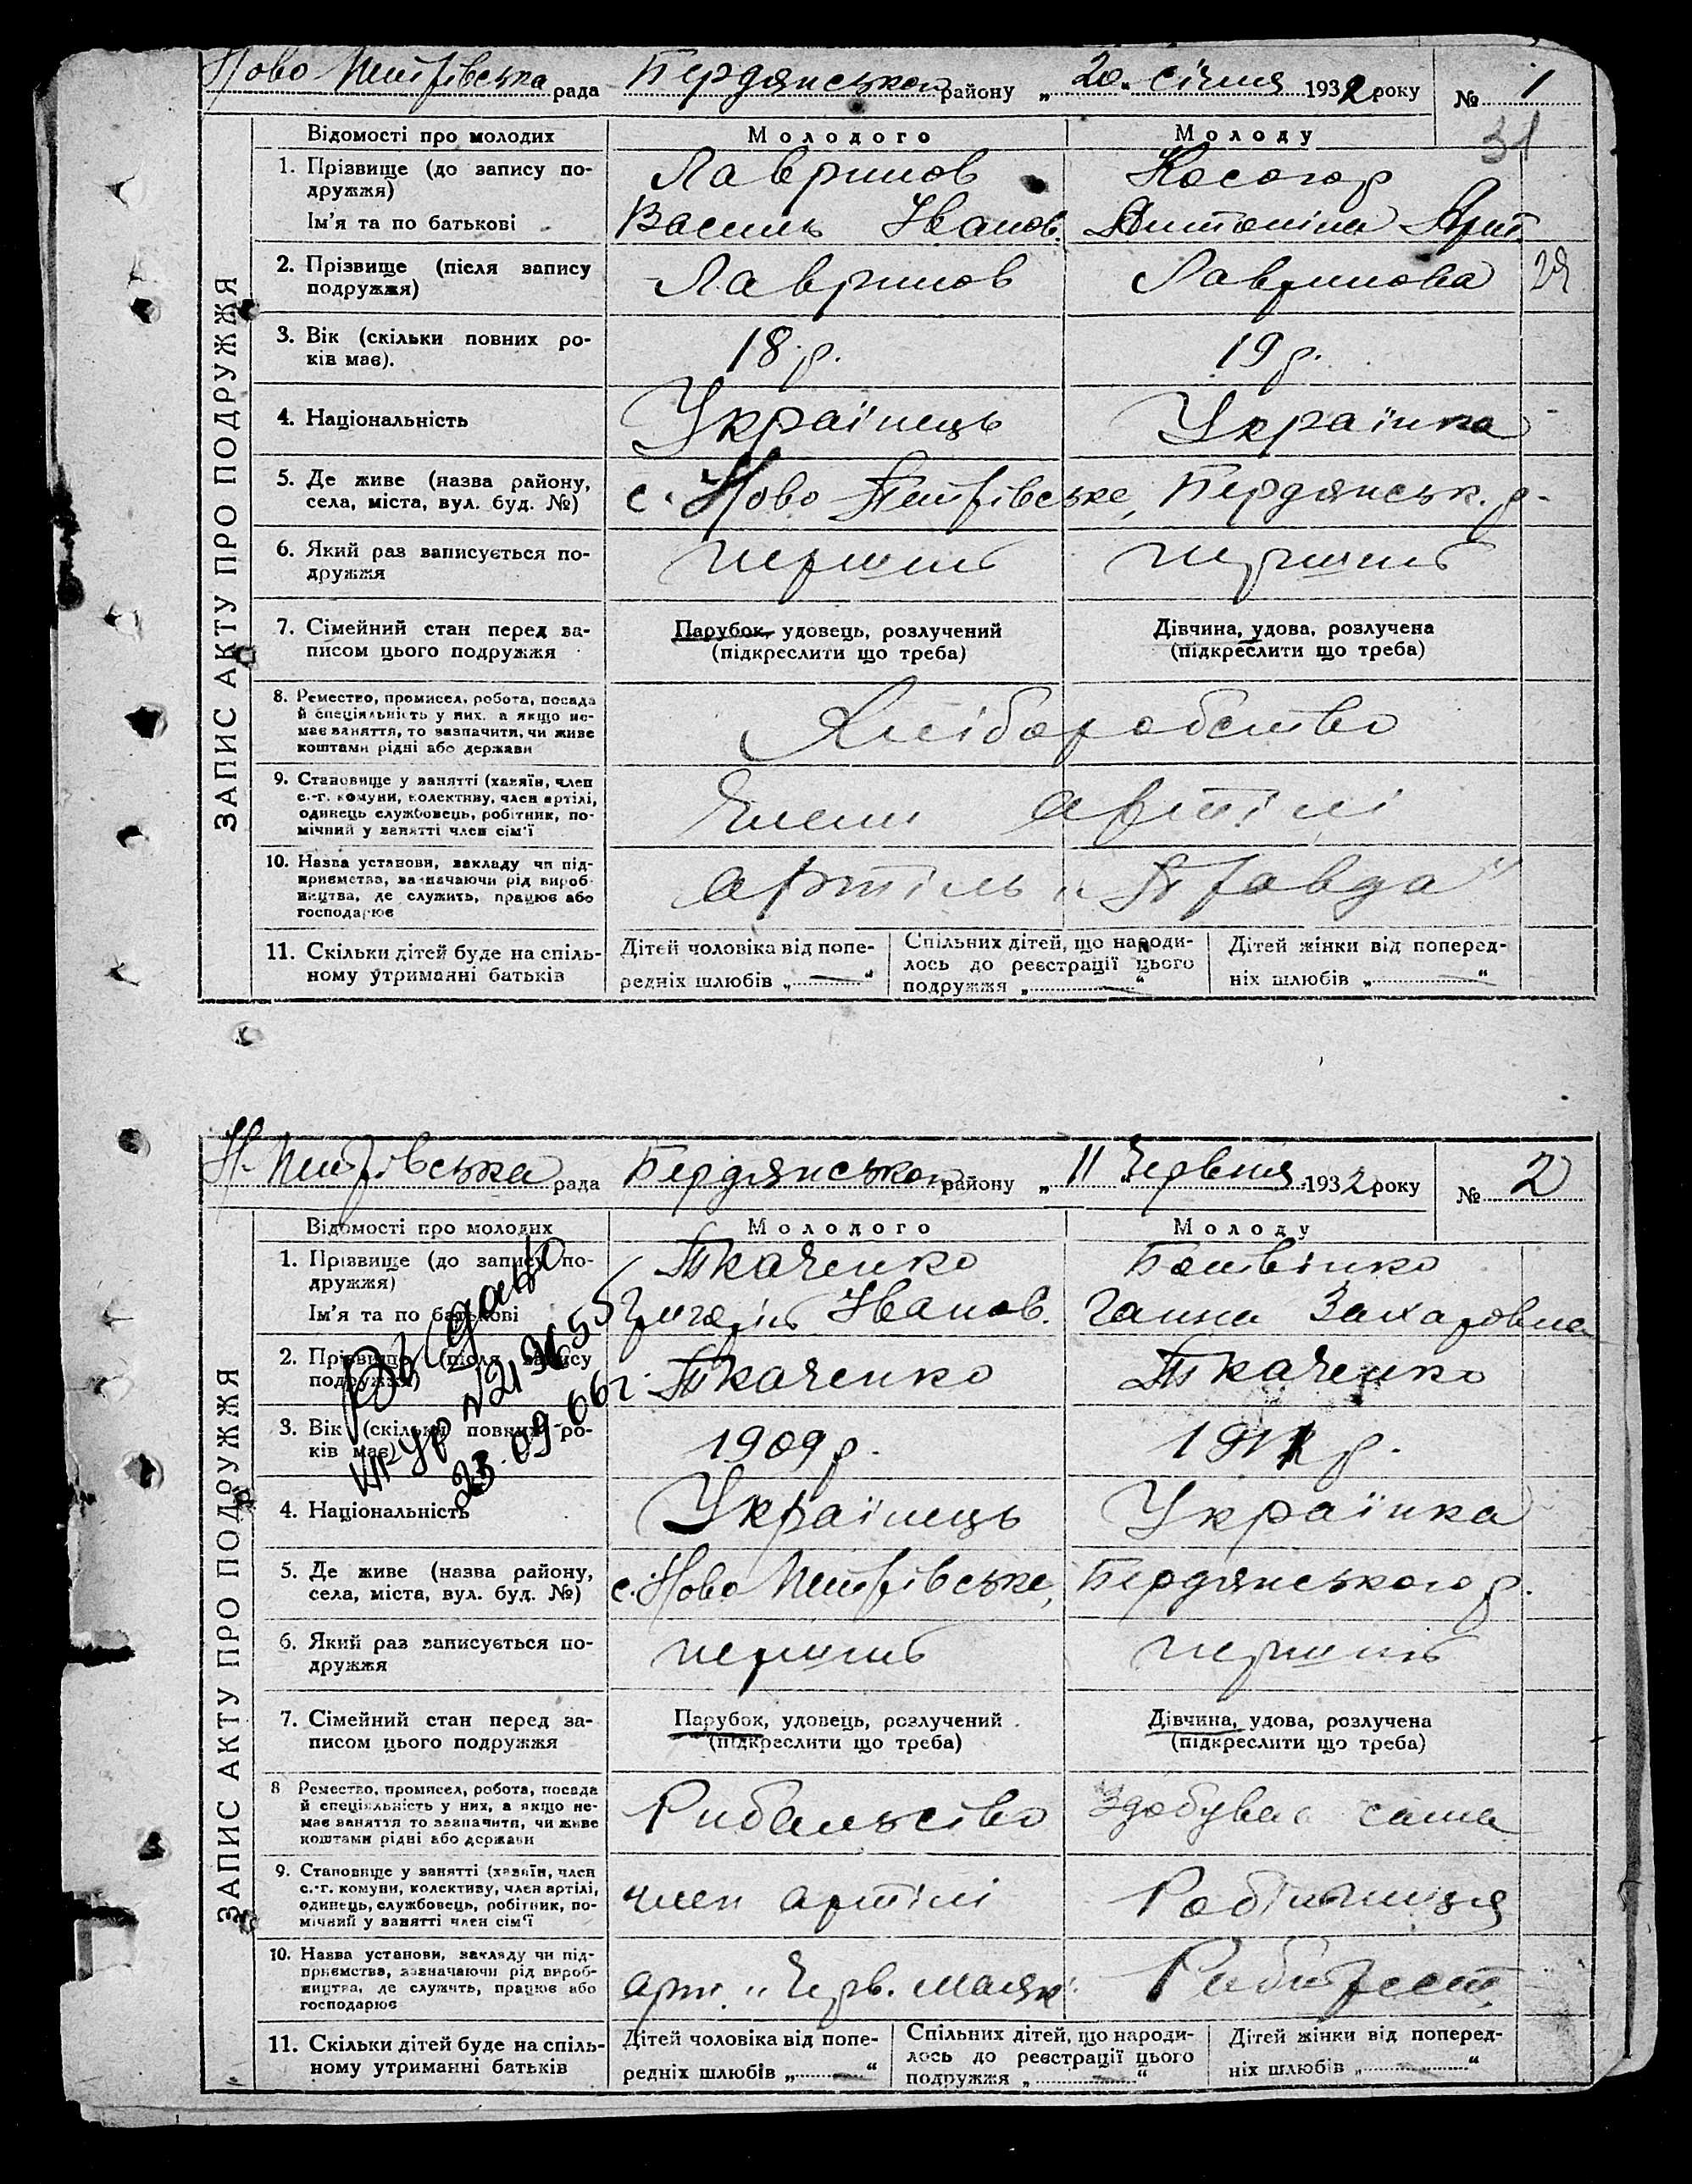 Ново Петрівська рада Бердянського району „20“ січня 1932 року № 1
31
Відомості про молодих Молодого Молоду
1. Прізвище (до запису по- Лавринов Косогор
дружжя)
Ім'я та по батькові Василь Іванов. Антоніна Арт.
2. Прізвище (після запису Лавринов Лавринова
подружжя)
3. Вік (скільки повних ро- 18 р. 19 р.
ків має).
4. Національність Українець Українка
5. Де живе (назва району, с. Ново Петрівське, Бердянськ. р.
села, міста, вул. буд. №)
6. Який раз записується по- перший перший
дружжя
7. Сімейний стан перед за- Парубок, удовець, розлучений Дівчина, удова, розлучена
писом цього подружжя (підкреслити що треба) (підкреслити що треба)
8. Ремество, промисел, робота, посада
й спеціяльність у них, а якщо не- Хліборобство
має заняття, то зазначити, чи живе
коштами рідні або держави
9. Становище у занятті (хазяїн, член
с.-г. комуни, колективу, член артілі, Члени артілі
одинець службовець, робітник, по-
мічний у занятті член сім'ї
10. Назва установи, закладу чи під-
приємства, зазначаючи рід вироб- артіль „Правда“
ництва, де служить, працює або
господарює
11. Скільки дітей буде на спіль- Дітей чоловіка від попе- Спільних дітей, що народи- Дітей жінки від поперед-
ному утриманні батьків редніх шлюбів „—“ лось до реєстрації цього ніх шлюбів „—“
подружжя „—“
ЗАПИС АКТУ ПРО ПОДРУЖЖЯ
Н-Петрівська рада Бердянського району „11 Червня 1932 року № 2
Відомості про молодих Молодого Молоду
1. Прізвище (до запису по- Ткаченко Ботвінко
дружжя)
Ім'я та по батькові Григорій Іванов. Ганна Захаровна
2. Прізвище (після запису Ткаченко Ткаченко
подружжя)
3. Вік (скільки повних ро- 1909 р. 1911 р.
ків має)
23.09.66г.
4. Національність Українець Українка
5. Де живе (назва району, с. Ново Петрівське, Бердянського р.
села, міста, вул. буд. №)
6. Який раз записується по- перший перший
дружжя
7. Сімейний стан перед за- Парубок, удовець, розлучений Дівчина, удова, розлучена
писом цього подружжя (підкреслити що треба) (підкреслити що треба)
8 Ремество, промисел, робота, посада
й спеціяльність у них, а якщо не- Рибальство Здобуває сама
має заняття то зазначити, чи живе
коштами рідні або держави
9. Становище у занятті (хазяїн, член
с.-г. комуни, колективу, член артілі, член артілі Робітниця
одинець, службовець, робітник, по-
мічний у занятті член сім'ї
10. Назва установи, закладу чи під-
приємства, зазначаючи рід вироб- арт. „Черв. маяк“ Рибтрест.
ництва, де служить, працює або
господарює
11. Скільки дітей буде на спіль- Дітей чоловіка від попе- Спільних дітей, що народи- Дітей жінки від поперед-
ному утриманні батьків редніх шлюбів „—“ лось до реєстрації цього ніх шлюбів „—“
подружжя „—“
ЗАПИС АКТУ ПРО ПОДРУЖЖЯ